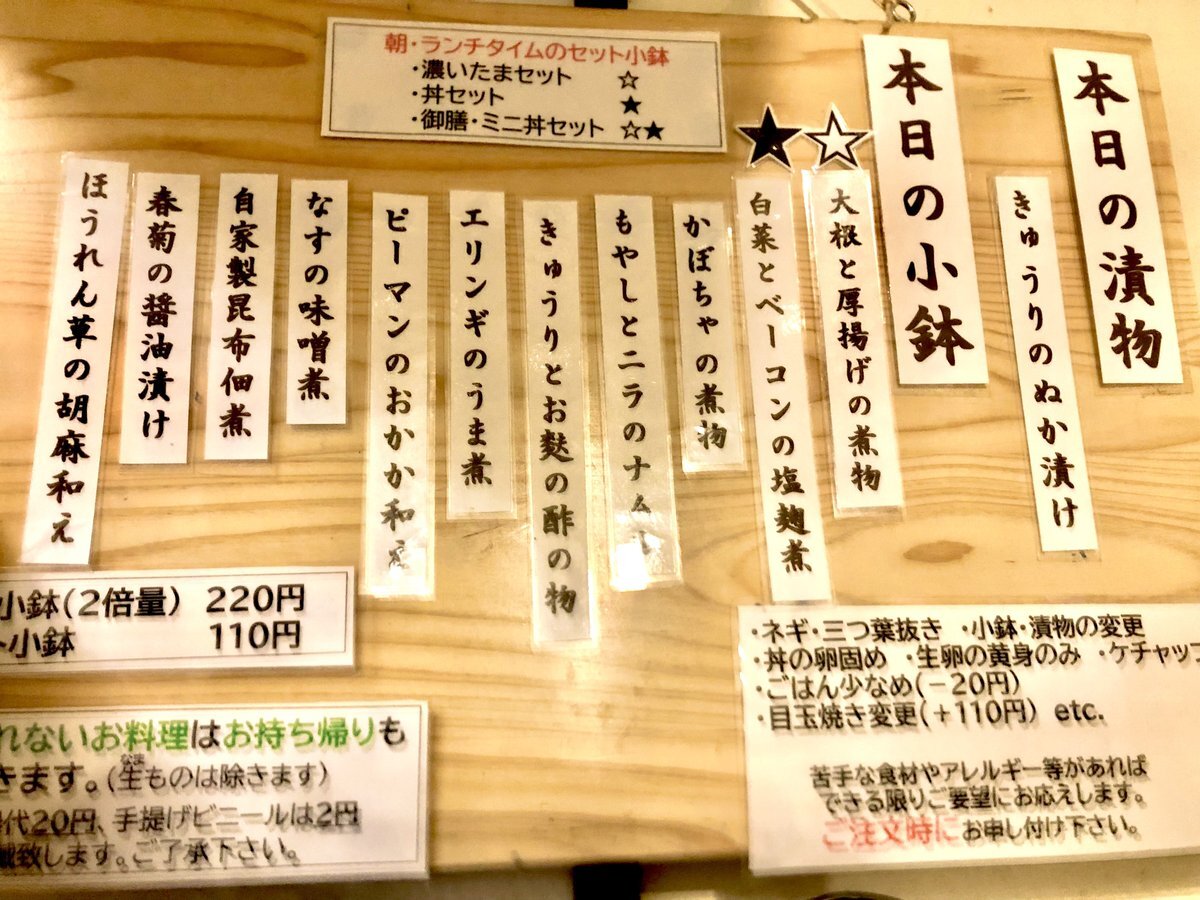 本日の漬物
きゅうりのぬか漬け
本日の小鉢
☆
大根と厚揚げの煮物
★
白菜とベーコンの塩麹煮
かぼちゃの煮物
もやしとニラのナムル
きゅうりとお麩の酢の物
エリンギのうま煮
ピーマンのおかか和え
なすの味噌煮
自家製昆布佃煮
春菊の醤油漬け
ほうれん草の胡麻和え
朝・ランチタイムのセット小鉢
・濃いたまセット ☆
・丼セット ★
・御膳・ミニ丼セット ☆★
小鉢(2倍量) 220円
小鉢 110円
れないお料理はお持ち帰りも
きます。(生ものは除きます)
代20円、手提げビニールは2円
致します。ご了承下さい。
・ネギ・三つ葉抜き ・小鉢・漬物の変更
・丼の卵固め ・生卵の黄身のみ ・ケチャップ
・ごはん少なめ(－20円)
・目玉焼き変更(＋110円) etc.
苦手な食材やアレルギー等があれば
できる限りご要望にお応えします。
ご注文時にお申し付け下さい。